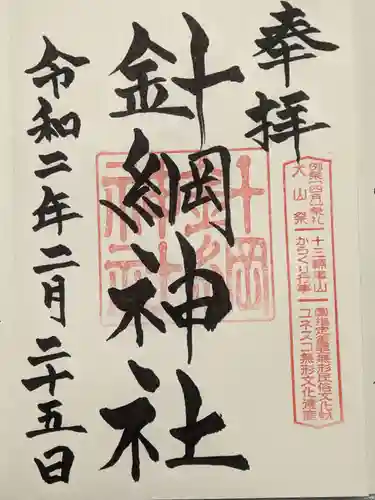 奉拝
針綱神社
令和二年二月二十五日
針綱
神社
例祭(四月第一土日)
犬山祭
十三輌車山
からくり行事
国指定重要無形民俗文化財
ユネスコ無形文化遺産